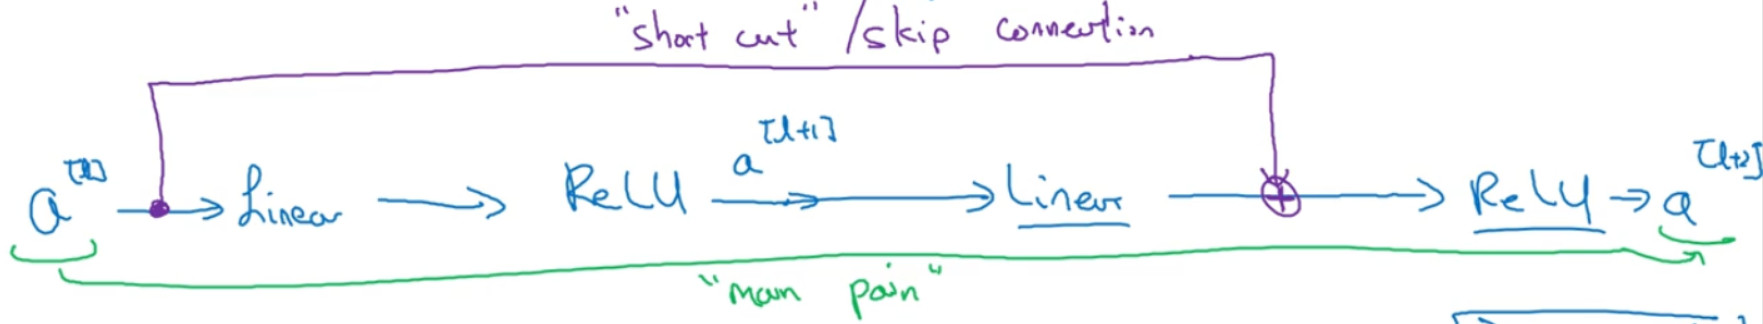 "short cut" / skip connection
a^[l] → Linear → ReLU a^[l+1] → Linear → ⊕ → ReLU → a^[l+2]
"main path"